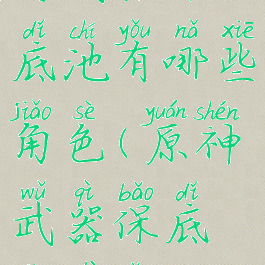 dǐ chí yǒu nǎ xiē
底池有哪些
jiǎo sè yuán shén
角色(原神
wǔ qì bǎo dǐ
武器保底